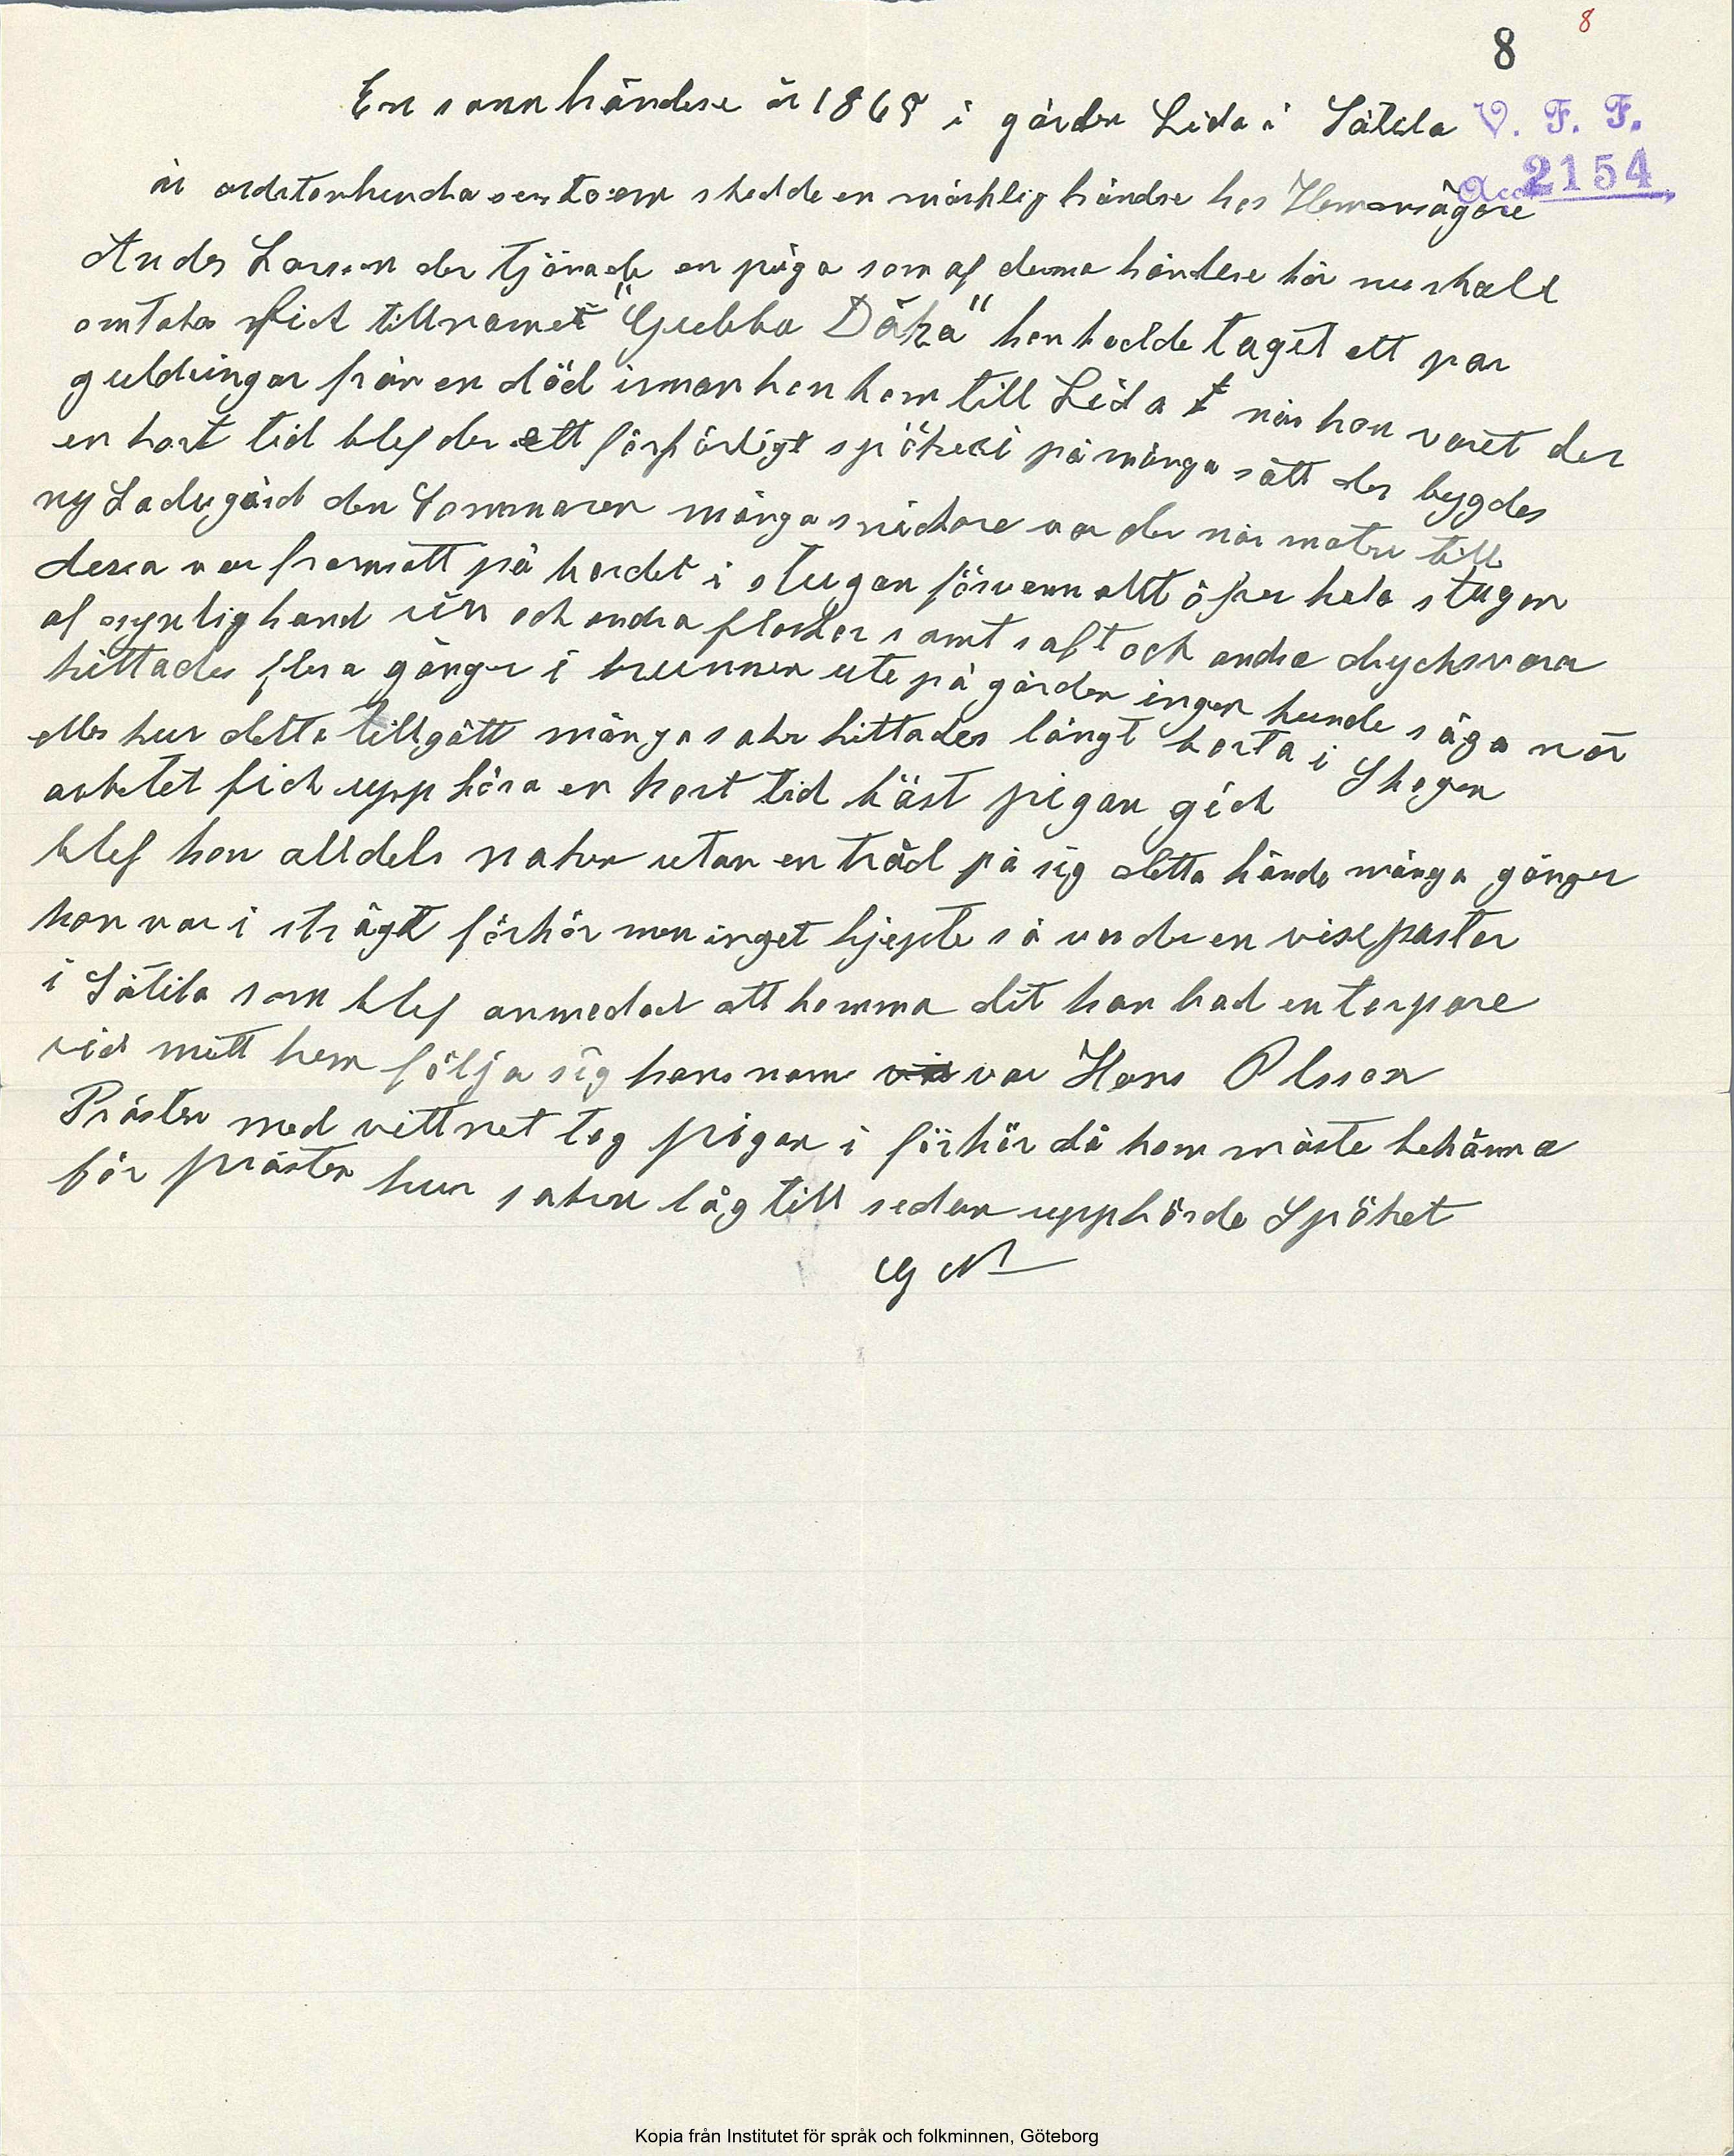 8
8
En sann händese år 1868 i gården Lida i Sätila V. F. F.
Acc. 2154
år skedde en märklig händse hos Hemansägare
Anders Larsson der tjänade en piga som af denna händese här nu skall
omtalas fick tillnamet "Gubba Dåka" hon hadde taget ett par
guldringar från en död innan hon kom till Lida når hon varet der
en kort tid blef der ett förfärligt spökeri på många sätt der bygdes
ny Ladugård den Sommaren många snickare var der når maten till
dessa var framsatt på bordet i stugan försvann allt öfver hela stugan
af osynlig hand vin och andra flaskor samt saft och andra drycksvaror
hittades flera gånger i brunnen ute på gården ingen kunde säga når
eller hur detta tillgått många saker hittades långt borta i Skogen
arbetet fick upphöra en kort tid bäst pigan gick
blef hon alldels naken utan en tråd på sig detta hände många gånger
hon var i strägt förhör men inget hjepte så var der en visepastor
i Sätila som blef anmodad att komma dit han bad en torpare
vid mitt hem följa sig hans namn var Hans Olsson
Prästen med vittnet tog pigan i förhör då hon måste bekänna
för prästen hur saken låg till sedan upphörde Spöket
G N
Kopia från Institutet för språk och folkminnen, Göteborg